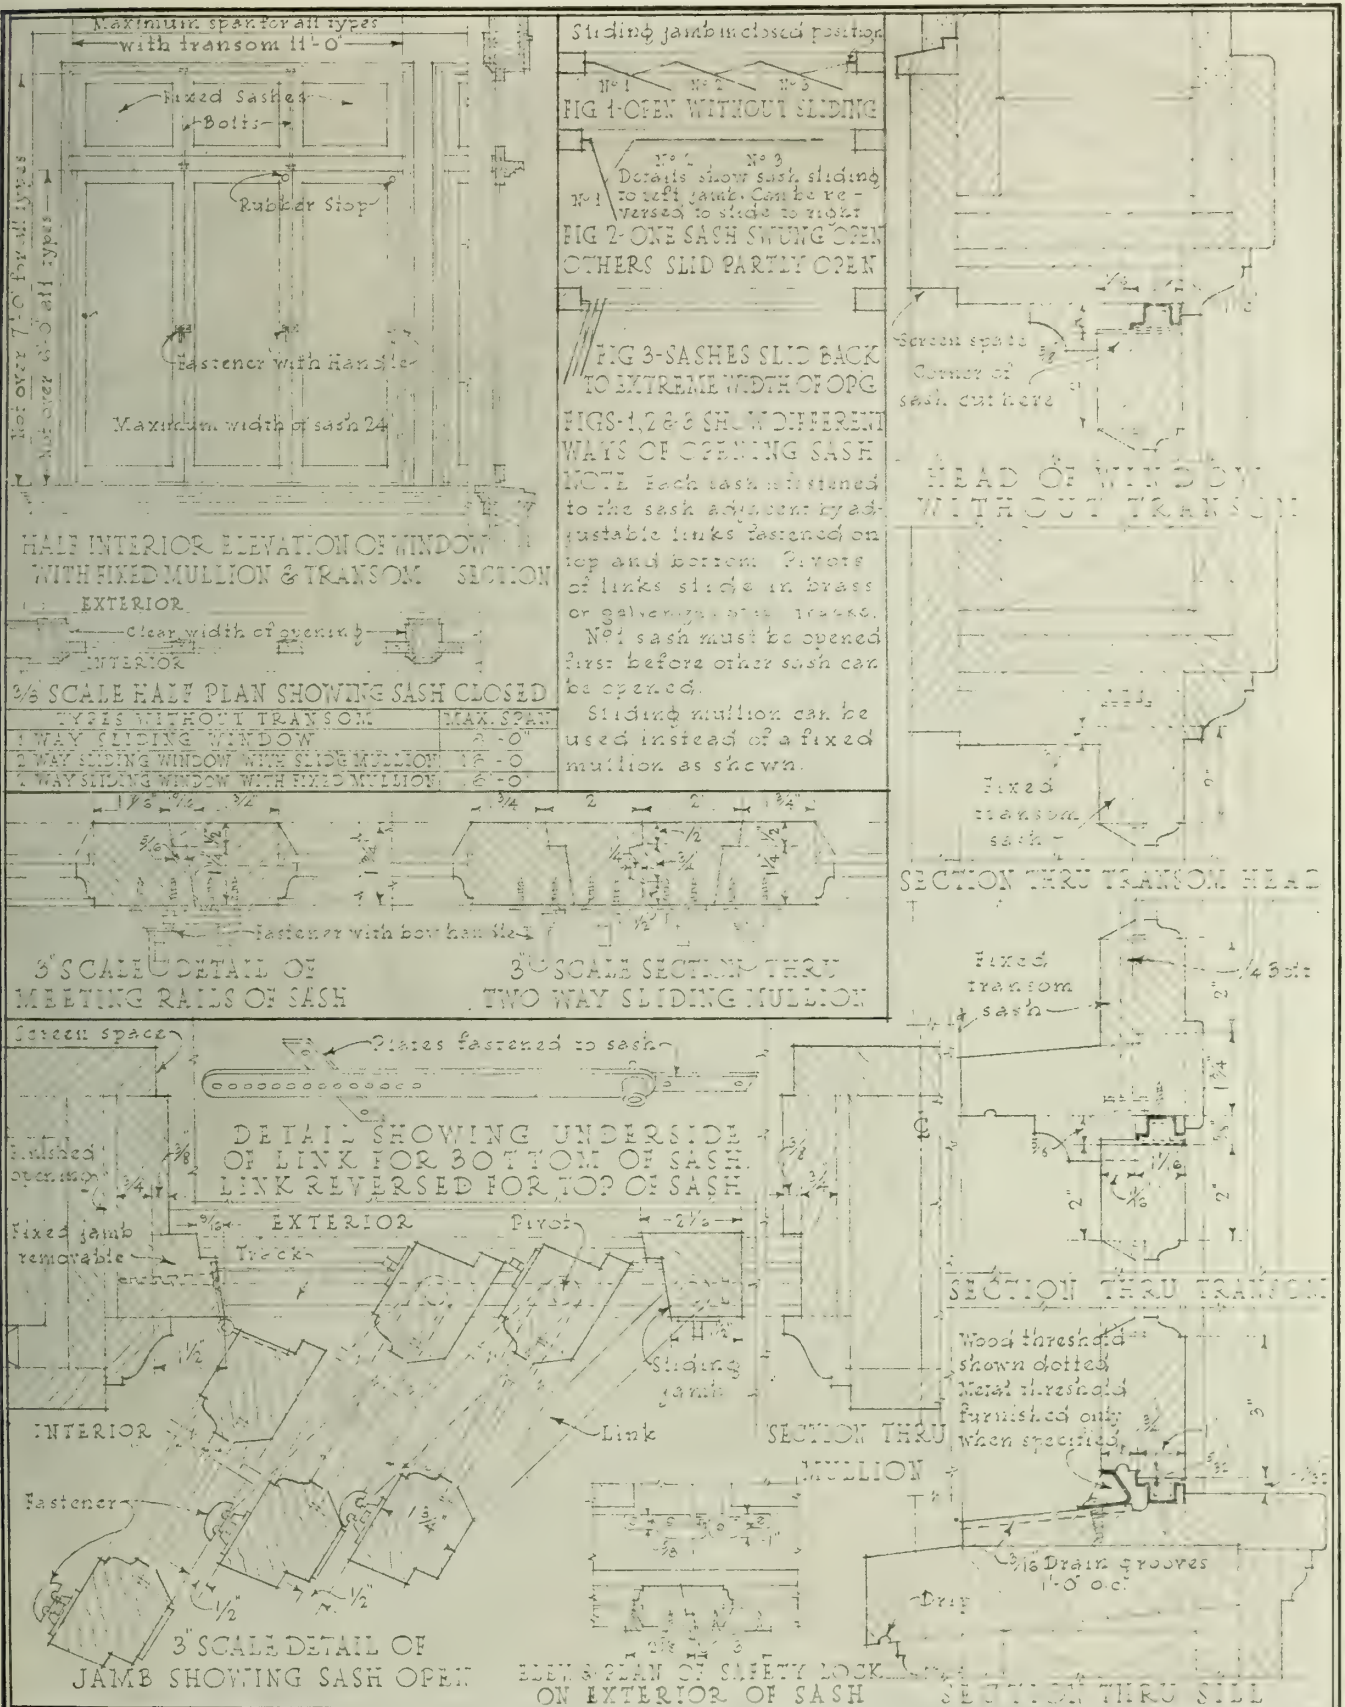 Maximum span for all types
with transom 11'-0"
Fixed Sashes
Bolts
Rubber Stop
Not over 7'-0" for all types
Not over 6'-0" all types
Fastener with Handle
Maximum width of sash 24"
HALF INTERIOR ELEVATION OF WINDOW
WITH FIXED MULLION & TRANSOM SECTION
EXTERIOR
Clear width of opening
INTERIOR
SCALE HALF PLAN SHOWING SASH CLOSED
TYPES WITHOUT TRANSOM MAX. SPAN
1 WAY SLIDING WINDOW
2 WAY SLIDING WINDOW WITH SLIDG MULLION
WAY SLIDING WINDOW WITH FIXED MULLION
Sliding jamb in closed position
Nº 1 Nº 2 Nº 3
FIG 1-OPEN WITHOUT SLIDING
Nº 2 Nº 3
Details show sash sliding
Nº 1 to left jamb. Can be re-
versed to slide to right
FIG 2-ONE SASH SWUNG OPEN
OTHERS SLID PARTLY OPEN
FIG 3-SASHES SLID BACK
TO EXTREME WIDTH OF OPG
FIGS-1,2 & 3 SHOW DIFFERENT
WAYS OF OPENING SASH
NOTE Each sash is fastened
to the sash adjacent by ad-
justable links fastened on
top and bottom Pivots
of links slide in brass
or
Nº 1 sash must be opened
first before other sash can
be opened.
Sliding mullion can be
used instead of a fixed
mullion as shown.
Screen space
Corner of
sash cut here
HEAD OF WINDOW
WITHOUT TRANSOM
Fixed
transom
sash
2"
SECTION THRU TRANSOM HEAD
3/4"
1 3/4 2 2 1 3/4"
Fastener with bow handle
3" SCALE DETAIL OF
MEETING RAILS OF SASH
3" SCALE SECTION THRU
TWO WAY SLIDING MULLION
Fixed
transom
sash
1/4 Bolt
2"
1 3/4"
2"
2"
SECTION THRU TRANSOM
Screen space
Plates fastened to sash
DETAIL SHOWING UNDERSIDE
OF LINK FOR BOTTOM OF SASH.
LINK REVERSED FOR TOP OF SASH
Finished
opening
3/4
Fixed jamb
removable
9/16
EXTERIOR
Pivot
Track
1 1/2"
Sliding
jamb
Link
INTERIOR
Fastener
1 3/4"
1/2"
1/2"
3" SCALE DETAIL OF
JAMB SHOWING SASH OPEN
3/4
SECTION THRU
MULLION
ELEV & PLAN OF SAFETY LOCK
ON EXTERIOR OF SASH
Wood threshold
shown dotted
Metal threshold
furnished only
when specified
3"
3/16 Drain grooves
1'-0" o.c.
Drip
SECTION THRU SILL